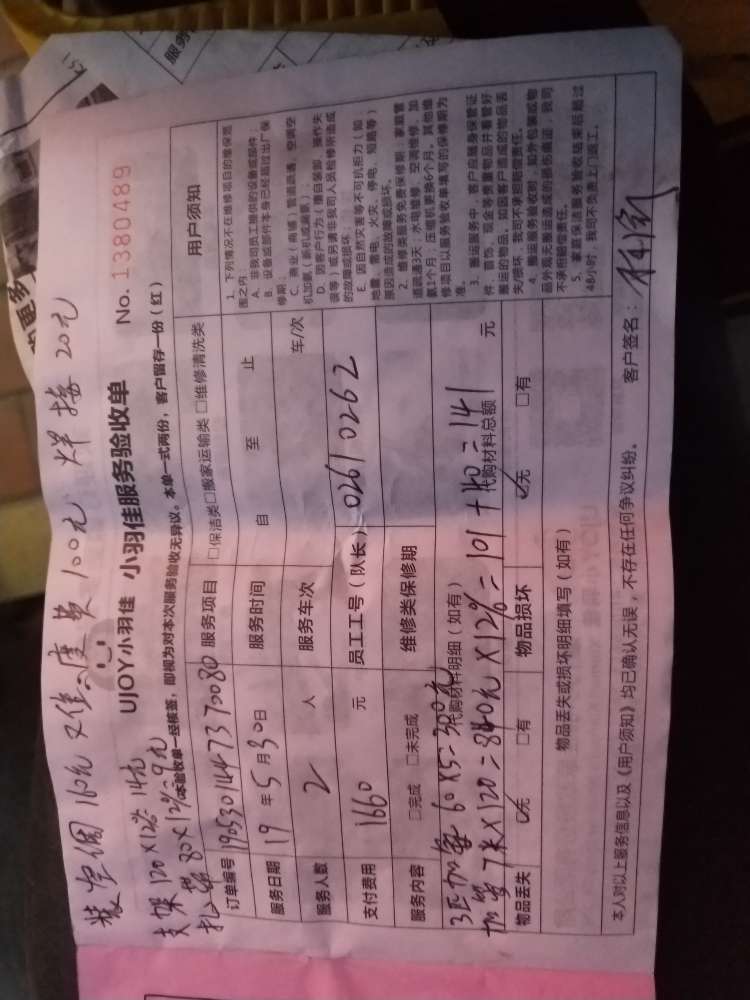 装空调160元 难度费100元 焊接20元
UJOY小羽佳 小羽佳服务验收单 No. 1380489
支架 120×12% 14元
本验收单一经核签，即视为对本次服务验收无异议。本单一式两份，客户留存一份（红）
80×12% 9元
订单编号 190530144737 0080 服务项目 □保洁类□搬家运输类 □维修清洗类
服务日期 19 年 5 月 30 日 服务时间 自 至 止
服务人数 2 人 服务车次 车/次
支付费用 1660 元 员工工号（队长） 0261 0262
服务内容 □完成 □未完成 维修类保修期
3匹加氟 60×5=300元
代购材料明细（如有）
加管 7米×120=840元×12%=101+40=141
代购材料总额 元
物品丢失 ☑无 □有 物品损坏 ☑无 □有
物品丢失或损坏明细填写（如有）
用户须知
1、下列情况不在维修项目的维保范
围之内：
A、非我司员工提供的设备或部件；
B、设备或部件本身已经超过出厂保
修期；
C、商业（商铺）管道疏通、空调空
机加氟（新机或避暑）；
D、因客户行为（擅自装卸、操作失
误等）或另请非我司人员检修所造成
的故障或损坏；
E、因自然灾害等不可抗拒力（如
地震、雷电、火灾、停电、短路等）
原因造成的故障或损坏。
2、维修类服务免费保修期：家庭管
道疏通3天；水电维修、空调维修、加
氟1个月；压缩机更换6个月。其他维
修项目以服务验收单填写的保修期为
准。
3、搬运服务中，客户应随身保管证
件、首饰、现金等贵重物品并看管好
搬运的物品，如因客户造成的物品丢
失/损坏，我司不承担赔偿责任。
4、搬运服务验收时，如外包装或物
品外表无搬运造成的损伤痕迹，我司
不承担赔偿责任。
5、家庭保洁服务验收结束后超过
48小时，我司不负责上门返工。
本人对以上服务信息以及《用户须知》均已确认无误，不存在任何争议纠纷。 客户签名：